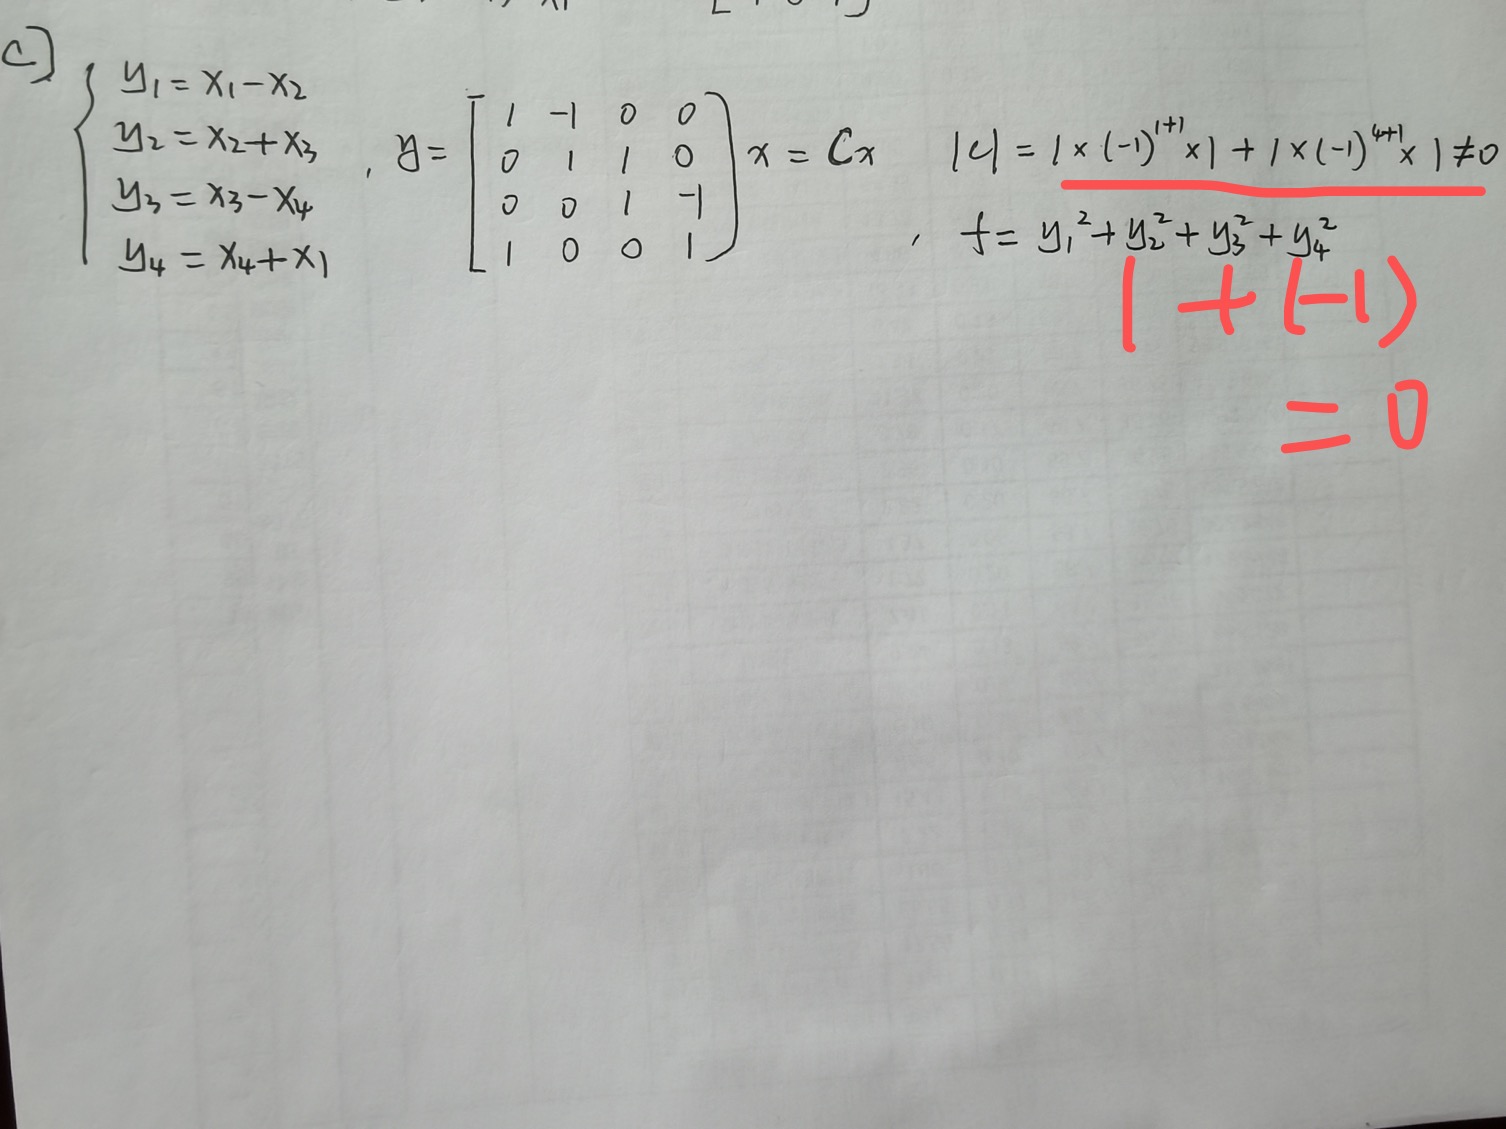 c]
y₁ = x₁ - x₂
y₂ = x₂ + x₃
y₃ = x₃ - x₄
y₄ = x₄ + x₁
, y = [ 1 -1 0 0
0 1 1 0
0 0 1 -1
1 0 0 1 ] x = Cx
|C| = 1 × (-1)¹⁺¹ × 1 + 1 × (-1)⁴⁺¹ × 1 ≠ 0
, f = y₁² + y₂² + y₃² + y₄²
1 + (-1)
= 0